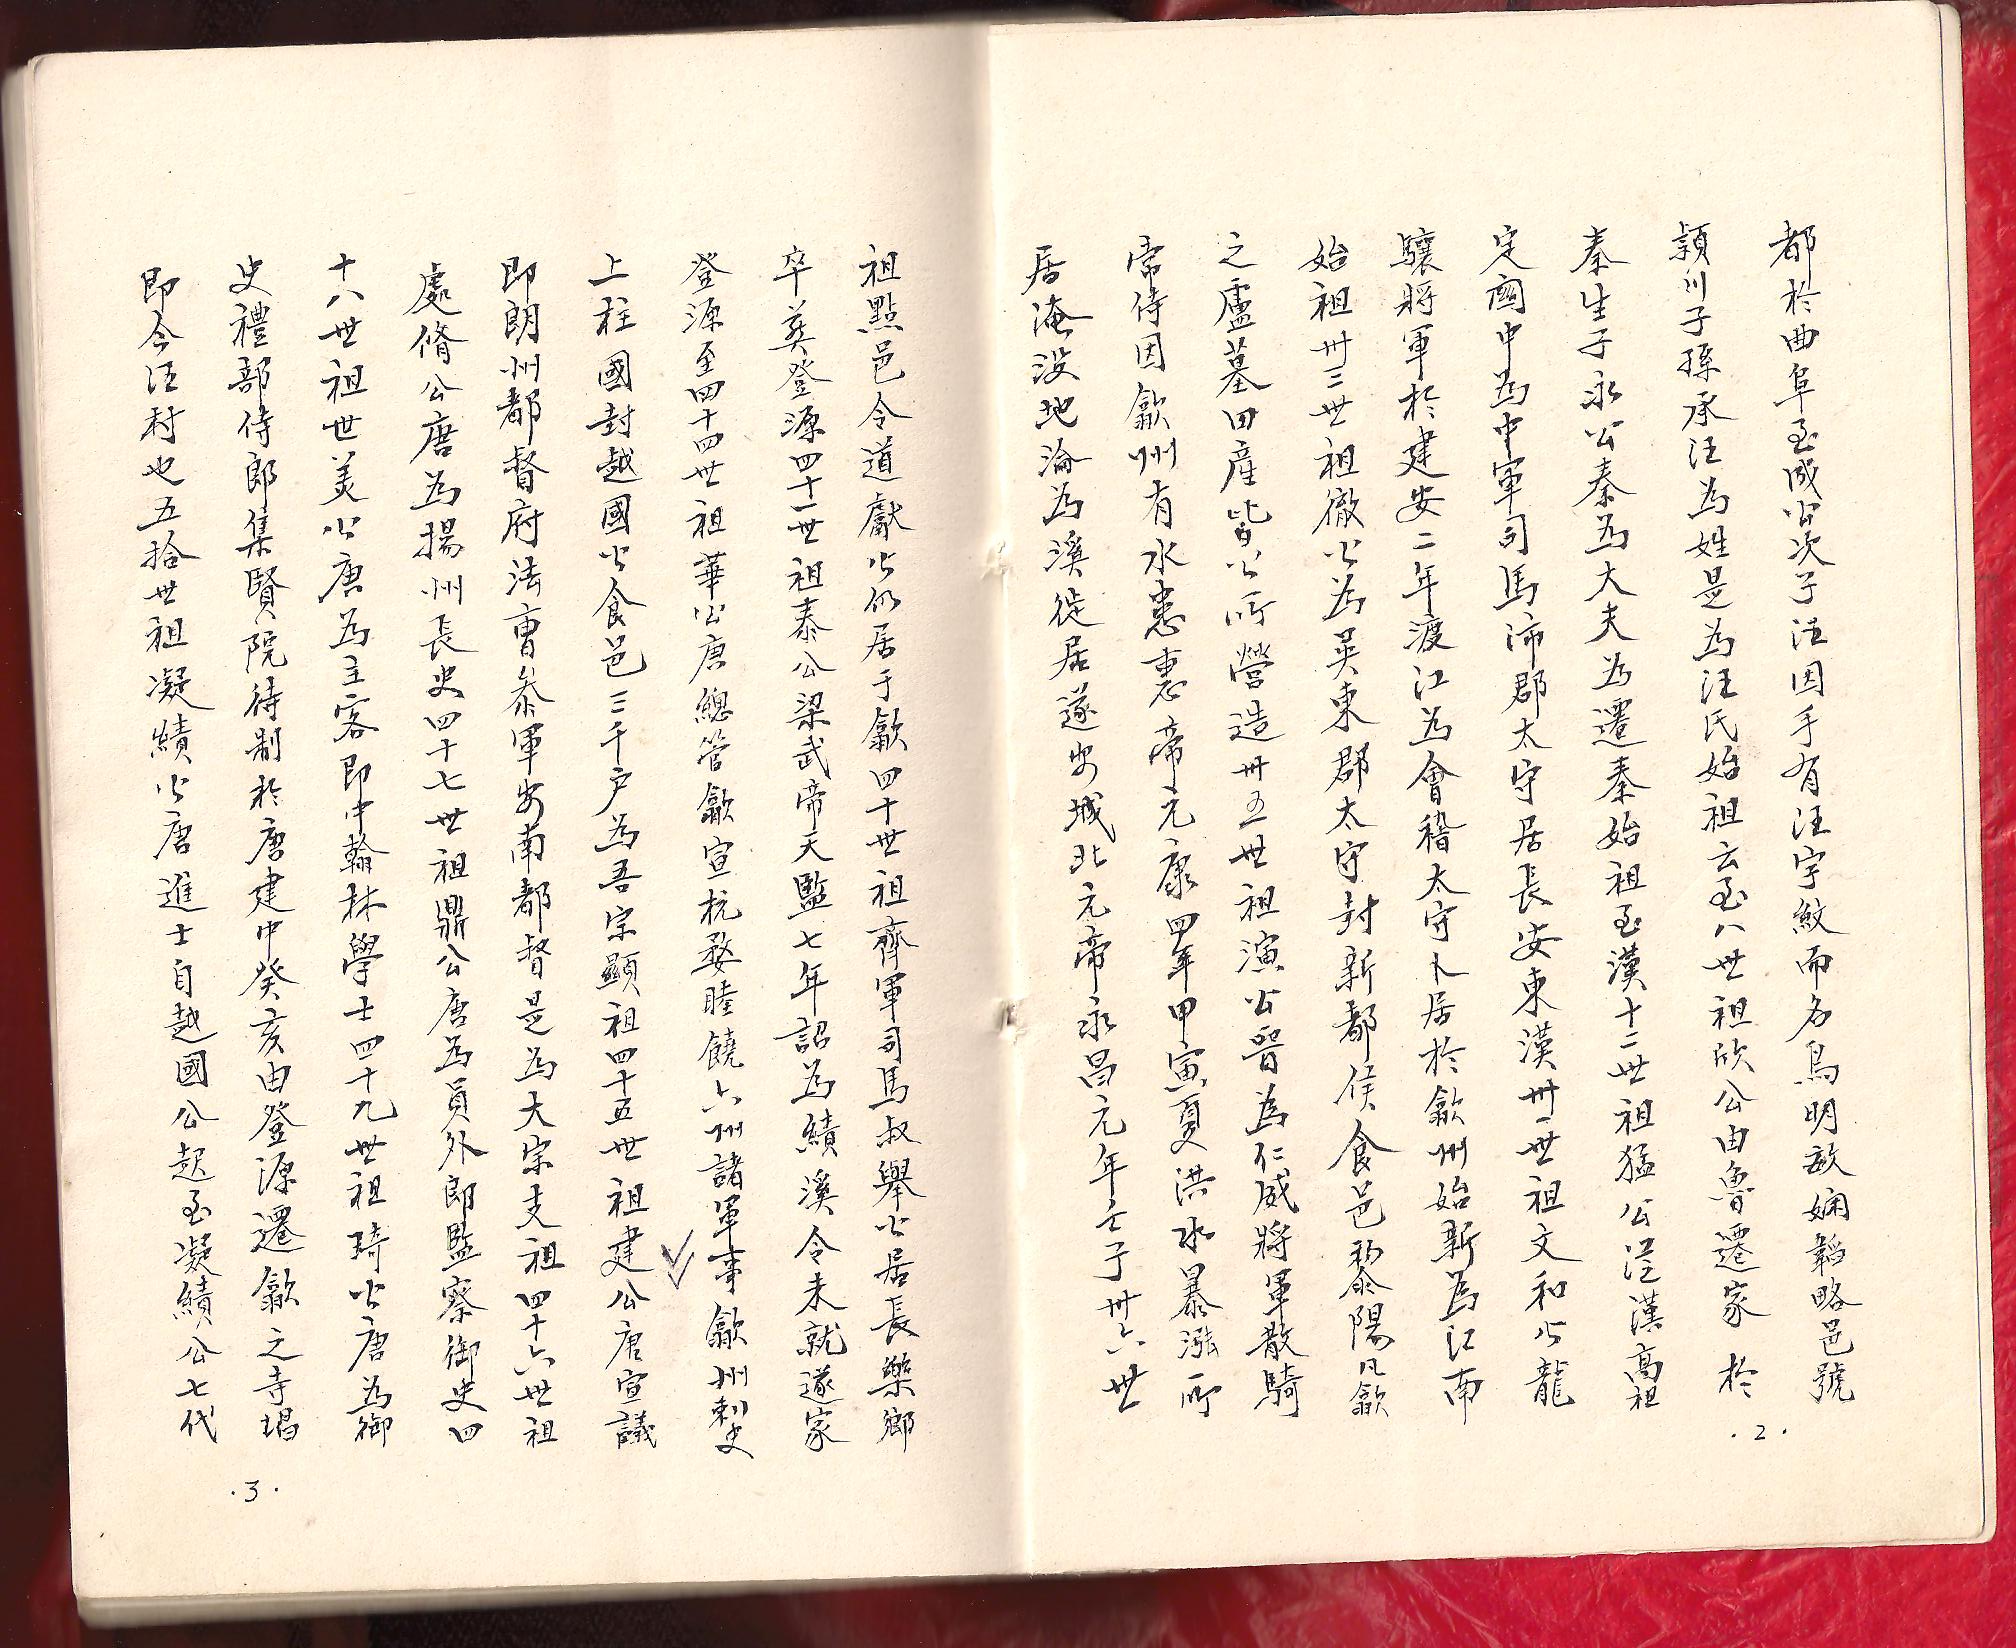 都於曲阜至成公次子汪因手有汪字紋而名焉明敏嫻韜略邑號
潁川子孫承汪為姓是為汪氏始祖云至八世祖欣公由魯遷家於
秦生子永公秦為大夫為遷秦始祖至漢十二世祖猛公從漢高祖
定關中為中軍司馬沛郡太守居長安東漢卅一世祖文和公龍
驤將軍於建安二年渡江為會稽太守卜居於歙州始新為江南
始祖卅三世祖徹公為吳東郡太守封新都侯食邑黟陽凡歙
之盧墓田產皆公所營造卅五世祖演公晉為仁威將軍散騎
常侍因歙州有水患惠帝元康四年甲寅夏洪水暴漲所
居淹没地淪為溪徙居遂安城北元帝永昌元年壬子卅六世
·2·
祖點邑令道獻公仍居于歙四十世祖齊軍司馬叔舉公居長樂鄉
卒葬登源四十一世祖泰公梁武帝天監七年詔為績溪令未就遂家
登源至四十四世祖華公唐總管歙宣杭婺睦饒六州諸軍事歙州刺史
上柱國封越國公食邑三千户為吾宗顯祖四十五世祖建公唐宣議
即朗州都督府法曹參軍安南都督是為大宗支祖四十六世祖
處脩公唐為揚州長史四十七世祖鼎公唐為員外郎監察御史四
十八世祖世美公唐為主客即中翰林學士四十九世祖琦公唐為御
史禮部侍郎集賢院待制於唐建中癸亥由登源遷歙之寺塢
即今汪村也五拾世祖凝績公唐進士自越國公起至凝績公七代
·3·